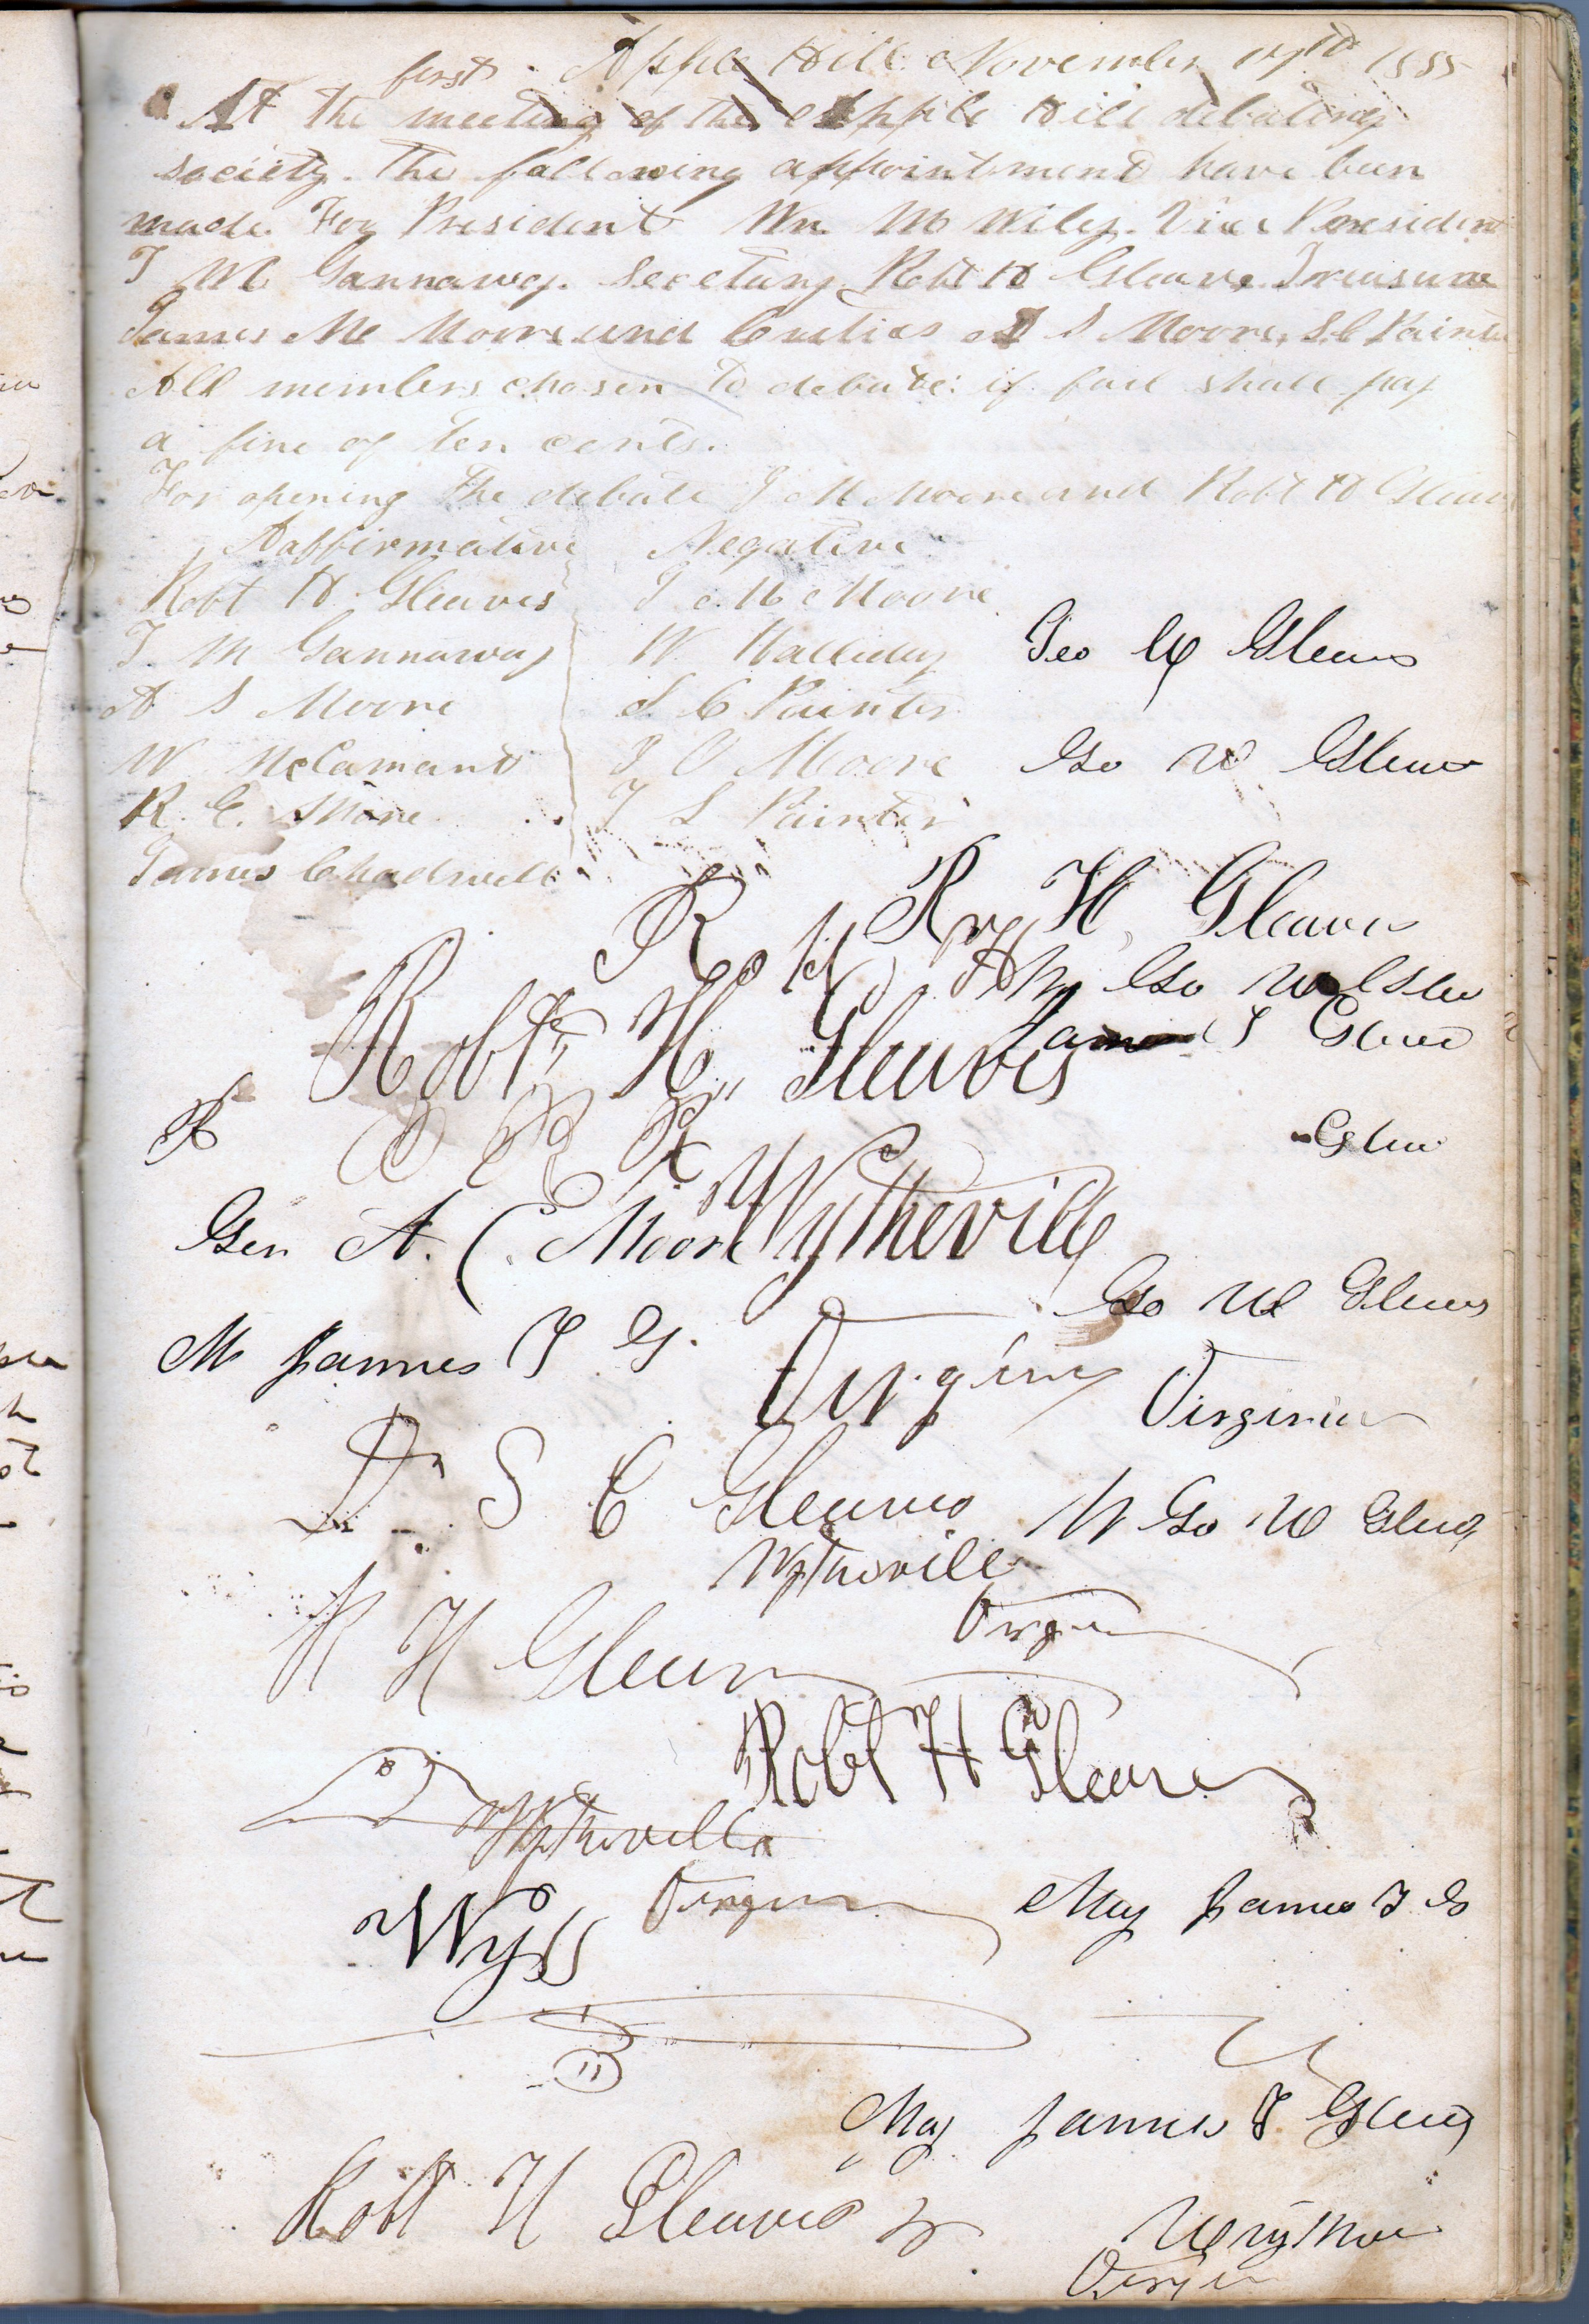 Apple Hill November 17th 1855
first
At the meeting of the Apple Hill debating
society. The following appointment have been
made. For President Wm. M Wiley. Vice President
T M Gannaway. Secetary Robt H Gleaves Treasure
James M Moore and Critics A S Moore, S C Painter
All members chosen to debate: if fail shall pay
a fine of ten cents.
For opening the debate J M Moore and Robt H Gleaves
Aaffirmative Negative
Robt H. Gleaves J M Moore
T. M Gannaway W. Halliday Geo W Gleaves
A S Moore S. C Painter
W McCamant J O Moore Geo W Gleaves
R. E. Moore T S Painter
James Chadwell
R H Gleaves
Geo W Gleav
Robt, H,, Gleaves James T Gleave
R
Gleav
Gen A. C. Moore Wytheville
Geo W Gleaves
M James T G.
Virginia Virginia
Dr S C Gleaves M Geo W Gleav
Wytheville
R H Gleaves Virginia
Robt H Gleaves
Wytheville
Virginia Maj James T G
Wyss
Maj James T Gleav
Robt H Gleaves Jr
Virgin